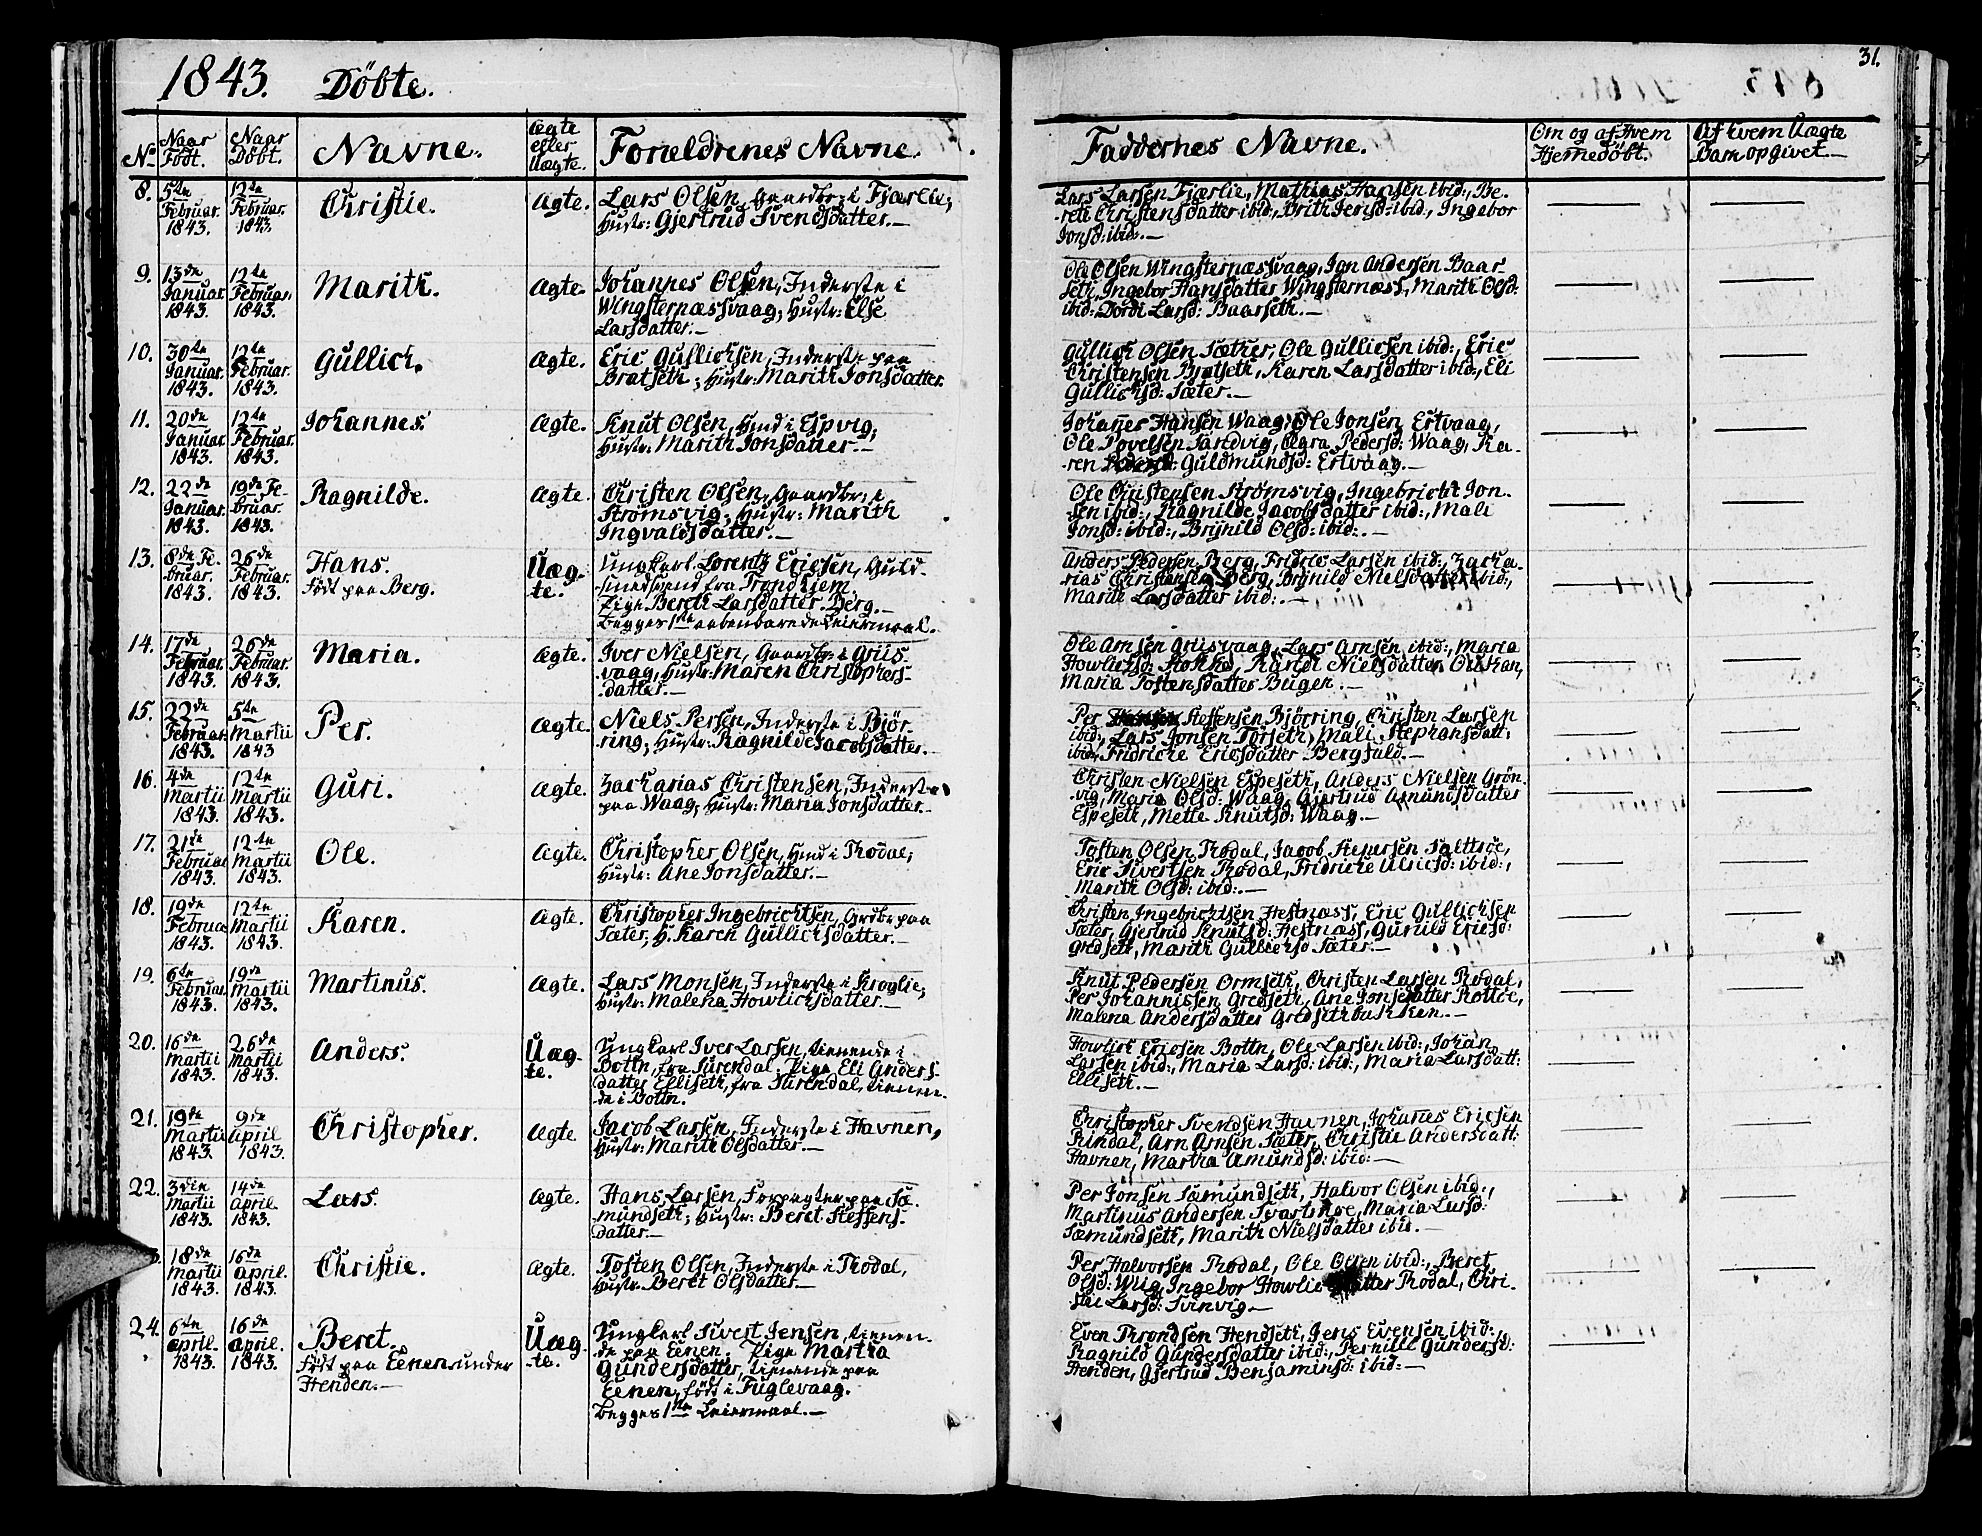 1843. Döbte.
31.
No Naar Födt. Naar Döbt. Navne. Ægte eller Uægte. Forældrenes Navne. Faddernes Navne. Om og af Hvem Hjemmedöbt. Af hvem Uægte Barn opgivet.
8. 5te Februar. 1843. 12te Februar. 1843. Christie. Ægte.
Lars Olsen, Gaardbr: i Fjærlie;
Hustr: Gjertrud Svendsdatter.
Lars Larsen Fjærlie, Mathias Hansen ibid:, Be-
reth Christensdatter ibid:, Brith Jensd: ibid:, Ingebor
Jonsd: ibid:.
9. 13de Januar. 1843. 12te Februar. 1843. Marith. Ægte.
Johannes Olsen, Inderste i
Wingsternæssvaag; Hustr: Else
Larsdatter.
Ole Olsen Wingsternæssvaag, Jon Andersen Baar-
seth, Ingebor Hansdatter Wingsternæss, Marith Olsd:
ibid:, Dordi Larsd: Baarseth.
10. 30te Januar. 1843. 12te Februar. 1843. Gullich. Ægte.
Eric Gullichsen, Inderste paa
Bratseth; Hustr: Marith Jonsdatter.
Gullich Olsen Sæther, Ole Gullicsen ibid:, Eric
Christensen Bratseth, Karen Larsdatter ibid:, Eli
Gullichsd: Sæter.
11. 20de Januar. 1843. 12te Februar. 1843. Johannes. Ægte.
Knut Olsen, Huusmd i Espvig;
Hustr: Marith Jonsdatter.
Johannes Hansen Waag, Ole Jonsen Ertvaag,
Ole Povelsen Sandvig, Pedersd: Waag, Ka-
ren Guldmundsd: Ertvaag.
12. 22de Januar. 1843. 19de Februar. 1843. Ragnilde. Ægte.
Christen Olsen, Gaardbr: i
Strömsvig; Hustr: Marith
Ingvaldsdatter.
Ole Christensen Strömsvig, Ingebricht Jon-
sen ibid:, Ragnilde Jacobsdatter ibid:, Mali
Jonsd: ibid:, Brynild Olsd: ibid:.
13. 8de Februar. 1843. 26de Februar. 1843. Hans. Födt paa Berg. Uægte.
Ungkarl Lorentz Ericsen, Guld-
smedsvend fra Trondhjem.
Pige Bereth Larsdatter Berg.
begges 1ste aabenbarede Leiermaal.
Anders Pedersen Berg, Fridric Larsen ibid:, Zacha-
rias Christensen Berg, Brynild Nielsdatter ibid:,
Marith Larsdatter ibid:.
14. 17de Februar. 1843. 26de Februar. 1843. Maria. Ægte.
Iver Nielsen, Gaardbr: i Griis-
vaag, Hustr: Maren Christophers-
datter.
Ole Arnsen Griisvaag, Lars Arnsen ibid:, Maria
Howlichsd: Randi Nielsdatter
Maria Tostensdatter Bugen.
15. 22de Februar. 1843. 5te Martii 1843 Per. Ægte.
Niels Persen, Inderste i Björ-
ring; Hustr: Ragnilde Jacobsdatter.
Per Steffensen Björring, Christen Larsen
ibid:, Lars Jonsen Torseth, Mali Stephansdatt:
ibid:, Fridriche Ericsdatter Bergfald.
16. 4de Martii 1843. 12te Martii 1843. Guri. Ægte.
Zacharias Christensen, Inderste
paa Waag; Hustr: Maria Jonsdatter.
Christen Nielsen Espeseth, Anders Nielsen Grön-
vig, Maria Olsd: Waag, Gjertrud Asmundsdatter
Espeseth, Mette Knutsd: Waag.
17. 21de Februar 1843. 12te Martii 1843. Ole. Ægte.
Christopher Olsen, Huusmd i Rodal;
Hustr: Ane Jonsdatter.
Tosten Olsen Rodal, Jacob Saltröe,
Eric Sivertsen Rodal, Fridriche Ulricsd: ibid:,
Marith Olsd: ibid:.
18. 19de Februar 1843. 12te Martii 1843. Karen. Ægte.
Christopher Ingebrichtsen, Grdbr paa
Sæter, H. Karen Gullichsdatter.
Christen Ingebrichtsen Hestnæss, Eric Gullichsen
Sæter, Gjertrud Knutsd: Hestnæss, Gunild Ericsd:
Gredseth, Marith Gullichsd Sæter.
19. 6te Februar 1843. 19de Martii 1843. Martinus. Ægte.
Lars Monsen, Inderste i Kroglie;
Hustr: Malena Howlichsdatter.
Knut Pedersen Ormseth, Christen Larsen Rodal,
Per Johannissen Gredseth, Ane Jonsdatter Rottöe,
Malena Andersdatter Gredsethbakken.
20. 16de Martii 1843. 26de Martii 1843. Anders. Uægte.
Ungkarl Iver Larsen, tienende i
Bottn, fra Surendal. Pige Eli Anders-
datter Elliseth, fra Surendal, tienen-
de i Bottn.
Howlich Ericsen Bottn, Ole Larsen ibid:, Johan
Larsen ibid:, Maria Larsd: ibid:, Maria Larsdatt:
Elliseth.
21. 19de Martii 1843. 9de April 1843. Christopher. Ægte
Jacob Larsen, Inderste i Havnen,
Hustr: Marith Olsdatter.
Christopher Svendsen Havnen, Johanes Ericsen
Rindal, Arn Arnsen Sæter, Christie Andersdatt:
Havnen, Martha Amundsd: ibid:
22. 3die Martii 1843. 14de April. 1843. Lars. Ægte.
Hans Larsen, Forpagter paa Sæ-
mundseth; Hustr: Beret Steffens-
datter.
Per Jonsen Sæmundseth, Halvor Olsen ibid:,
Martinus Andersen Maria Larsd:
Sæmundseth, Marith Nielsdatter ibid.
18de Martii 1843. 16de April. 1843. Christie. Ægte.
Tosten Olsen, Inderste i Rodal,
Hustr: Beret Olsdatter.
Per Halvorsen Rodal, Ole Olsen ibid:, Beret
Olsd: Wiig, Ingebor Rodal, Chri-
stie Larsd: Svinvig.
24. 6te April. 1843. 16de April. 1843. Beret. Födt paa Eenen under Henden. Uægte.
Ungkarl Sivert Jensen, tienen-
de paa Eenen. Pige Martha
Gundersdatter, tienende paa
Eenen, födt i Fuglevaag.
begges 1ste Leiermaal.
Even Throndsen Hendseth, Jens Evensen ibid:
Ragnild Gundersdatter ibid:, Pernille Gundersd:
Henden, Gjertrud Benjaminsd: ibid: